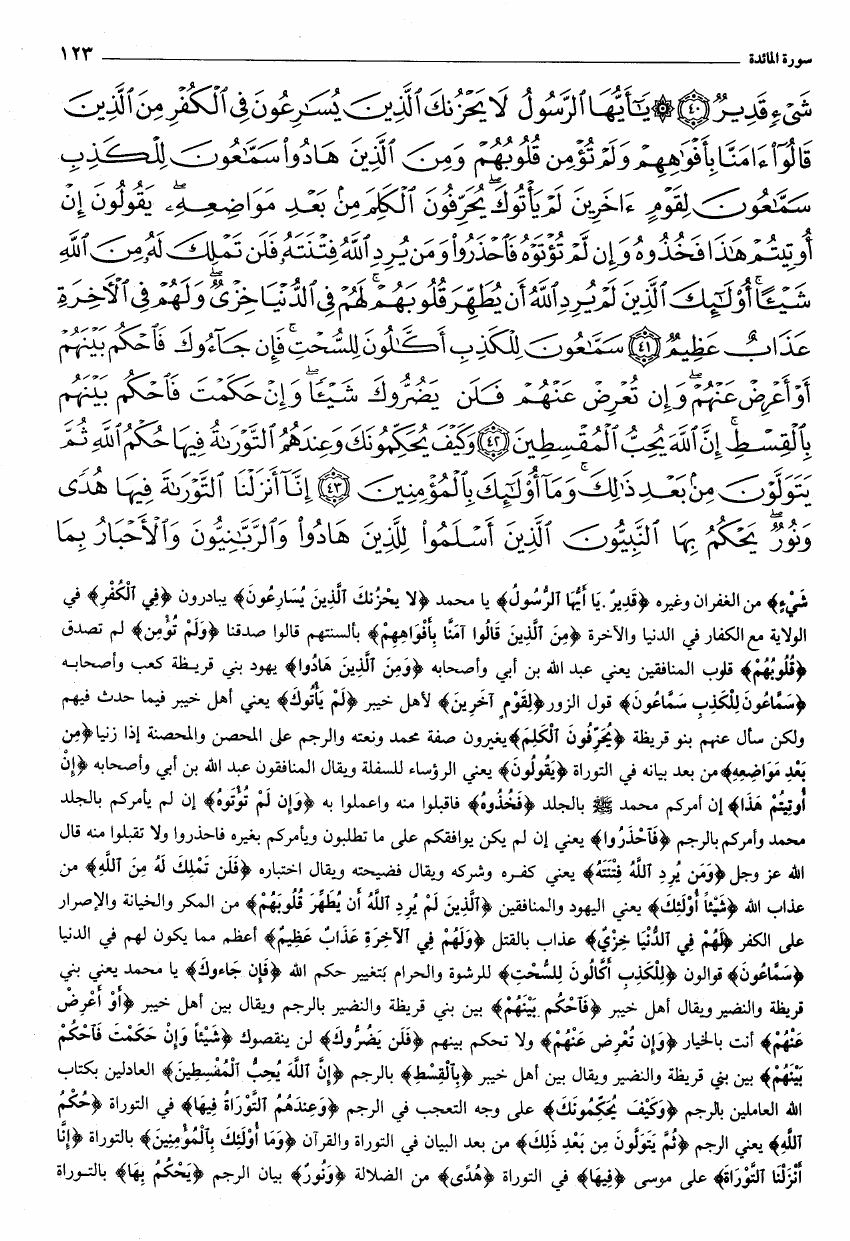 سورة المائدة ١٢٣
شَىْءٍ قَدِيرٌ ﴿٤٠﴾ ۞ يَٰٓأَيُّهَا ٱلرَّسُولُ لَا يَحْزُنكَ ٱلَّذِينَ يُسَٰرِعُونَ فِى ٱلْكُفْرِ مِنَ ٱلَّذِينَ
قَالُوٓا۟ ءَامَنَّا بِأَفْوَٰهِهِمْ وَلَمْ تُؤْمِن قُلُوبُهُمْ ۛ وَمِنَ ٱلَّذِينَ هَادُوا۟ ۛ سَمَّٰعُونَ لِلْكَذِبِ
سَمَّٰعُونَ لِقَوْمٍ ءَاخَرِينَ لَمْ يَأْتُوكَ ۖ يُحَرِّفُونَ ٱلْكَلِمَ مِنۢ بَعْدِ مَوَاضِعِهِۦ ۖ يَقُولُونَ إِنْ
أُوتِيتُمْ هَٰذَا فَخُذُوهُ وَإِن لَّمْ تُؤْتَوْهُ فَٱحْذَرُوا۟ ۚ وَمَن يُرِدِ ٱللَّهُ فِتْنَتَهُۥ فَلَن تَمْلِكَ لَهُۥ مِنَ ٱللَّهِ
شَيْـًٔا ۚ أُو۟لَٰٓئِكَ ٱلَّذِينَ لَمْ يُرِدِ ٱللَّهُ أَن يُطَهِّرَ قُلُوبَهُمْ ۚ لَهُمْ فِى ٱلدُّنْيَا خِزْىٌ ۖ وَلَهُمْ فِى ٱلْءَاخِرَةِ
عَذَابٌ عَظِيمٌ ﴿٤١﴾ سَمَّٰعُونَ لِلْكَذِبِ أَكَّٰلُونَ لِلسُّحْتِ ۚ فَإِن جَآءُوكَ فَٱحْكُم بَيْنَهُمْ
أَوْ أَعْرِضْ عَنْهُمْ ۖ وَإِن تُعْرِضْ عَنْهُمْ فَلَن يَضُرُّوكَ شَيْـًٔا ۖ وَإِنْ حَكَمْتَ فَٱحْكُم بَيْنَهُم
بِٱلْقِسْطِ ۚ إِنَّ ٱللَّهَ يُحِبُّ ٱلْمُقْسِطِينَ ﴿٤٢﴾ وَكَيْفَ يُحَكِّمُونَكَ وَعِندَهُمُ ٱلتَّوْرَىٰةُ فِيهَا حُكْمُ ٱللَّهِ ثُمَّ
يَتَوَلَّوْنَ مِنۢ بَعْدِ ذَٰلِكَ ۚ وَمَآ أُو۟لَٰٓئِكَ بِٱلْمُؤْمِنِينَ ﴿٤٣﴾ إِنَّآ أَنزَلْنَا ٱلتَّوْرَىٰةَ فِيهَا هُدًى
وَنُورٌ ۚ يَحْكُمُ بِهَا ٱلنَّبِيُّونَ ٱلَّذِينَ أَسْلَمُوا۟ لِلَّذِينَ هَادُوا۟ وَٱلرَّبَّٰنِيُّونَ وَٱلْأَحْبَارُ بِمَا
شَيْءٍ﴾ من الغفران وغيره ﴿قَدِيرٌ. يَا أَيُّهَا ٱلرَّسُولُ﴾ يا محمد ﴿لا يَحْزُنكَ ٱلَّذِينَ يُسَارِعُونَ﴾ يبادرون ﴿فِي ٱلْكُفْرِ﴾ في
الولاية مع الكفار في الدنيا والآخرة ﴿مِنَ ٱلَّذِينَ قَالُوا آمَنَّا بِأَفْوَاهِهِمْ﴾ بألسنتهم قالوا صدقنا ﴿وَلَمْ تُؤْمِن﴾ لم تصدق
﴿قُلُوبُهُمْ﴾ قلوب المنافقين يعني عبد الله بن أبي وأصحابه ﴿وَمِنَ ٱلَّذِينَ هَادُوا﴾ يهود بني قريظة كعب وأصحابه
﴿سَمَّاعُونَ لِلْكَذِبِ سَمَّاعُونَ﴾ قول الزور ﴿لِقَوْمٍ آخَرِينَ﴾ لأهل خيبر ﴿لَمْ يَأْتُوكَ﴾ يعني أهل خيبر فيما حدث فيهم
ولكن سأل عنهم بنو قريظة ﴿يُحَرِّفُونَ ٱلْكَلِمَ﴾ يغيرون صفة محمد ونعته والرجم على المحصن والمحصنة إذا زنيا ﴿مِن
بَعْدِ مَوَاضِعِهِ﴾ من بعد بيانه في التوراة ﴿يَقُولُونَ﴾ يعني الرؤساء للسفلة ويقال المنافقون عبد الله بن أبي وأصحابه ﴿إِنْ
أُوتِيتُمْ هَذَا﴾ إن أمركم محمد ﷺ بالجلد ﴿فَخُذُوهُ﴾ فاقبلوا منه واعملوا به ﴿وَإِن لَمْ تُؤْتَوْهُ﴾ إن لم يأمركم بالجلد
محمد وأمركم بالرجم ﴿فَٱحْذَرُوا﴾ يعني إن لم يكن يوافقكم على ما تطلبون ويأمركم بغيره فاحذروا ولا تقبلوا منه قال
الله عز وجل ﴿وَمَن يُرِدِ ٱللَّهُ فِتْنَتَهُ﴾ يعني كفره وشركه ويقال فضيحته ويقال اختباره ﴿فَلَن تَمْلِكَ لَهُ مِنَ ٱللَّهِ﴾ من
عذاب الله ﴿شَيْئاً أُوْلَئِكَ﴾ يعني اليهود والمنافقين ﴿ٱلَّذِينَ لَمْ يُرِدِ ٱللَّهُ أَن يُطَهِّرَ قُلُوبَهُمْ﴾ من المكر والخيانة والإصرار
على الكفر ﴿لَهُمْ فِي ٱلدُّنْيَا خِزْيٌ﴾ عذاب بالقتل ﴿وَلَهُمْ فِي ٱلآخِرَةِ عَذَابٌ عَظِيمٌ﴾ أعظم مما يكون لهم في الدنيا
﴿سَمَّاعُونَ﴾ قوالون ﴿لِلْكَذِبِ أَكَّالُونَ لِلسُّحْتِ﴾ للرشوة والحرام بتغيير حكم الله ﴿فَإِن جَاءوكَ﴾ يا محمد يعني بني
قريظة والنضير ويقال أهل خيبر ﴿فَٱحْكُم بَيْنَهُمْ﴾ بين بني قريظة والنضير بالرجم ويقال بين أهل خيبر ﴿أَوْ أَعْرِضْ
عَنْهُمْ﴾ أنت بالخيار ﴿وَإِن تُعْرِضْ عَنْهُمْ﴾ ولا تحكم بينهم ﴿فَلَن يَضُرُّوكَ﴾ لن ينقصوك ﴿شَيْئاً وَإِنْ حَكَمْتَ فَٱحْكُمْ
بَيْنَهُمْ﴾ بين بني قريظة والنضير ويقال بين أهل خيبر ﴿بِٱلْقِسْطِ﴾ بالرجم ﴿إِنَّ ٱللَّهَ يُحِبُّ ٱلْمُقْسِطِينَ﴾ العادلين بكتاب
الله العاملين بالرجم ﴿وَكَيْفَ يُحَكِّمُونَكَ﴾ على وجه التعجب في الرجم ﴿وَعِندَهُمُ ٱلتَّوْرَاةُ فِيهَا﴾ في التوراة ﴿حُكْمُ
ٱللَّهِ﴾ يعني الرجم ﴿ثُمَّ يَتَوَلَّونَ مِن بَعْدِ ذَلِكَ﴾ من بعد البيان في التوراة والقرآن ﴿وَمَا أُوْلَئِكَ بِٱلْمُؤْمِنِينَ﴾ بالتوراة ﴿إِنَّا
أَنْزَلْنَا ٱلتَّوْرَاةَ﴾ على موسى ﴿فِيهَا﴾ في التوراة ﴿هُدًى﴾ من الضلالة ﴿وَنُورٌ﴾ بيان الرجم ﴿يَحْكُمُ بِهَا﴾ بالتوراة